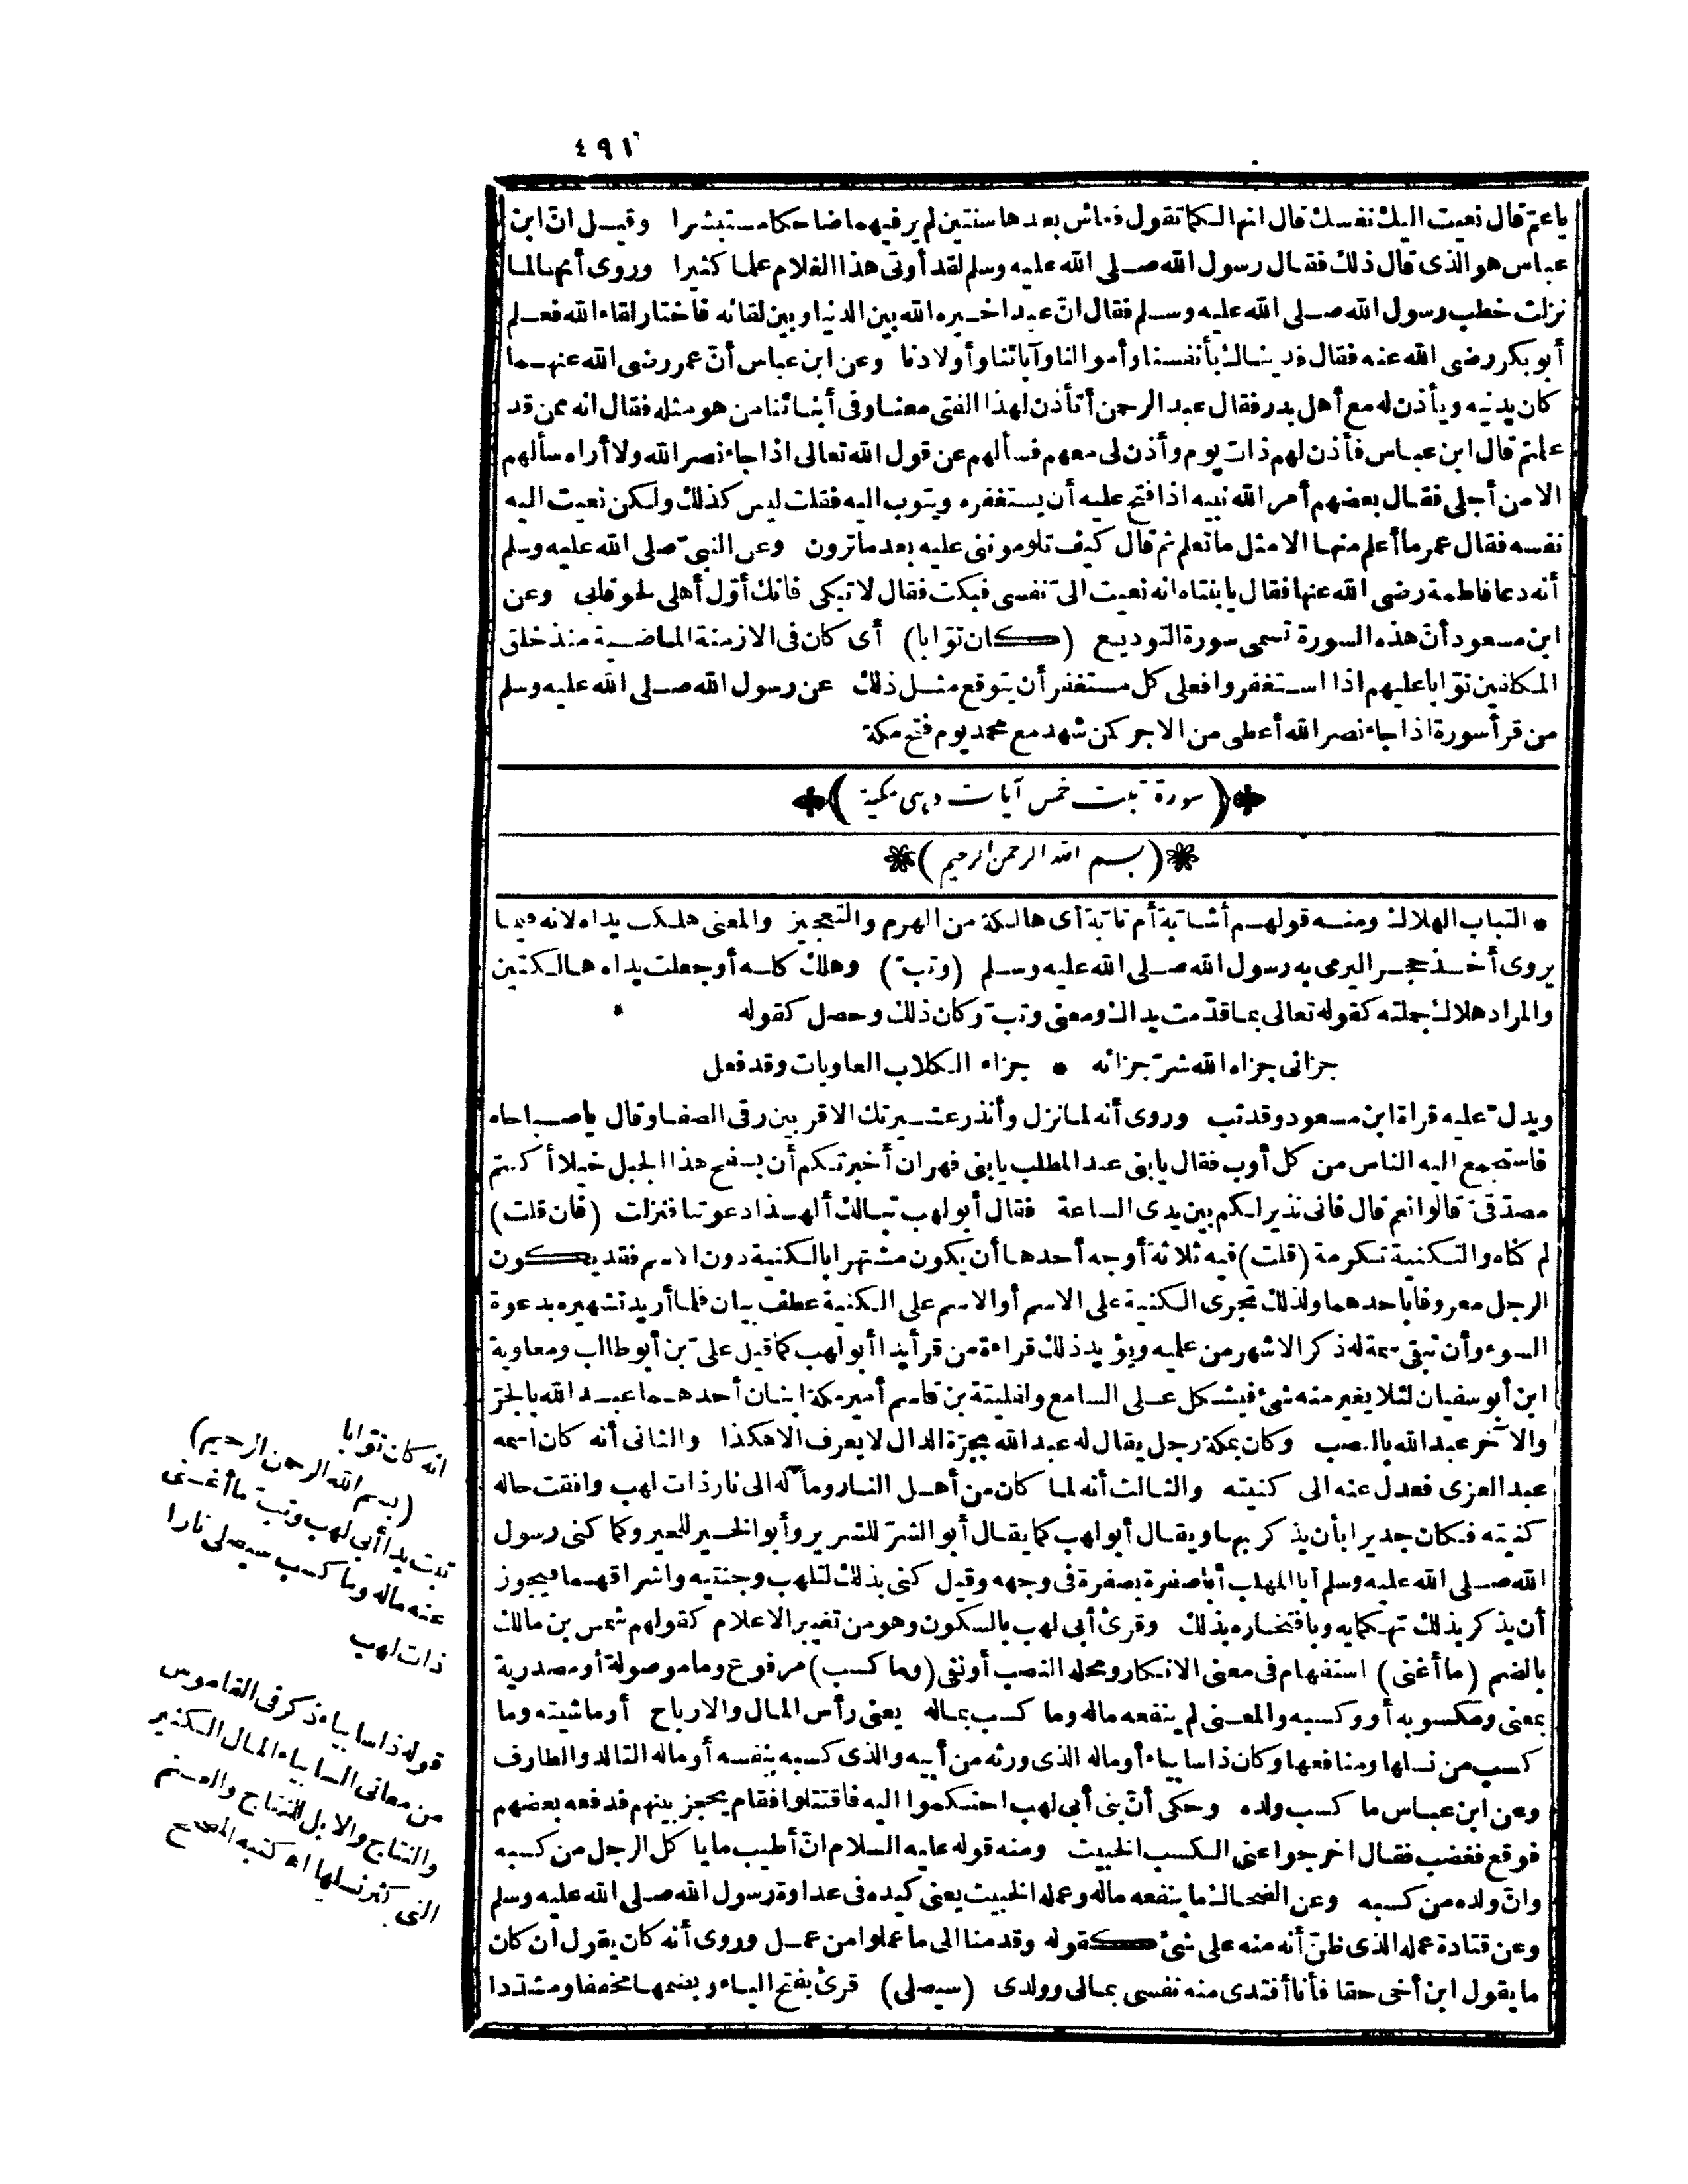 ٤٩١
ياعم قال نعيت اليك نفسك قال انها لكما تقول فعاش بعدها سنتين لم ير فيهما ضاحكا مستبشرا وقيل ان ابن
عباس هو الذى قال ذلك فقال رسول الله صلى الله عليه وسلم لقد أوتى هذا الغلام علما كثيرا وروى أنها لما
نزلت خطب رسول الله صلى الله عليه وسلم فقال انّ عبدا خيره الله بين الدنيا وبين لقائه فاختار لقاء الله فعلم
أبو بكر رضى الله عنه فقال فديناك بأنفسنا وأموالنا وآبائنا وأولادنا وعن ابن عباس أنّ عمر رضى الله عنهما
كان يدنيه ويأذن له مع أهل بدر فقال عبد الرحمن أتأذن لهذا الفتى معنا وفى أبنائنا من هو مثله فقال انه ممن قد
علمتم قال ابن عباس فأذن لهم ذات يوم وأذن لى معهم فسألهم عن قول الله تعالى اذا جاء نصر الله ولا أراه سألهم
الا من أجلى فقال بعضهم أمر الله نبيه اذا فتح عليه أن يستغفره ويتوب اليه فقلت ليس كذلك ولكن نعيت اليه
نفسه فقال عمر ما أعلم منها الا مثل ما تعلم ثم قال كيف تلوموننى عليه بعد ما ترون وعن النبىّ صلى الله عليه وسلم
أنه دعا فاطمة رضى الله عنها فقال يا بنتاه انه نعيت الىّ نفسى فبكت فقال لا تبكى فانك أوّل أهلى لحوقا بى وعن
ابن مسعود أنّ هذه السورة تسمى سورة التوديع (كان توّابا) أى كان فى الازمنة الماضية منذ خلق
المكلفين توّابا عليهم اذا استغفروا فعلى كل مستغفر أن يتوقع مثل ذلك عن رسول الله صلى الله عليه وسلم
من قرأ سورة اذا جاء نصر الله أعطى من الاجر كمن شهد مع محمد يوم فتح مكة
(سورة تبت خمس آيات وهى مكية)
(بسم الله الرحمن الرحيم)
* التباب الهلاك ومنه قولهم أشابّة أم تابّة أى هالكة من الهرم والتعجيز والمعنى هلكت يداه لانه فيما
يروى أخذ حجرا ليرمى به رسول الله صلى الله عليه وسلم (وتبّ) وهلك كله أو جعلت يداه هالكتين
والمراد هلاك جملته كقوله تعالى بما قدّمت يداك ومعنى وتبّ وكان ذلك وحصل كقوله
جزانى جزاه الله شرّ جزائه * جزاء الكلاب العاويات وقد فعل
ويدلّ عليه قراءة ابن مسعود وقد تب وروى أنه لما نزل وأنذر عشيرتك الاقربين رقى الصفا وقال يا صباحاه
فاستجمع اليه الناس من كل أوب فقال يا بنى عبد المطلب يا بنى فهر ان أخبرتكم أن بسفح هذا الجبل خيلا أكنتم
مصدّقىّ قالوا نعم قال فانى نذير لكم بين يدى الساعة فقال أبو لهب تبا لك ألهذا دعوتنا فنزلت (فان قلت)
لم كناه والتكنية تكرمة (قلت) فيه ثلاثة أوجه أحدها أن يكون مشتهرا بالكنية دون الاسم فقد يكون
الرجل معروفا باحدهما ولذلك تجرى الكنية على الاسم أو الاسم على الكنية عطف بيان فلما أريد تشهيره بدعوة
السوء وأن تبقى سمة له ذكر الاشهر من علميه ويؤيد ذلك قراءة من قرأ يدا أبو لهب كما قيل علىّ بن أبو طالب ومعاوية
ابن أبو سفيان لئلا يغير منه شئ فيشكل على السامع ولفليتة بن قاسم أمير مكة ابنان أحدهما عبد الله بالجرّ
والآخر عبد الله بالنصب وكان بمكة رجل يقال له عبد الله بجرّة الدال لا يعرف الا هكذا والثانى أنه كان اسمه
عبد العزى فعدل عنه الى كنيته والثالث أنه لما كان من أهل النار ومآله الى نار ذات لهب وافقت حاله
كنيته فكان جديرا بأن يذكر بها ويقال أبو لهب كما يقال أبو الشرّ للشرير وأبو الخير للخير وكما كنى رسول
الله صلى الله عليه وسلم أبا المهلب أبا صفرة بصفرة فى وجهه وقيل كنى بذلك لتلهب وجنتيه واشراقهما فيجوز
أن يذكر بذلك تهكما به وبافتخاره بذلك وقرئ أبى لهب بالسكون وهو من تغيير الاعلام كقولهم شمس بن مالك
بالضم (ما أغنى) استفهام فى معنى الانكار ومحله النصب أو نفى (وما كسب) مرفوع وما موصولة أو مصدرية
بمعنى ومكسوبه أو وكسبه والمعنى لم ينفعه ماله وما كسب بماله يعنى رأس المال والارباح أو ماشيته وما
كسب من نسلها ومنافعها وكان ذا سابياء أو ماله الذى ورثه من أبيه والذى كسبه بنفسه أو ماله التالد والطارف
وعن ابن عباس ما كسب ولده وحكى أنّ بنى أبى لهب احتكموا اليه فاقتتلوا فقام يحجز بينهم فدفعه بعضهم
فوقع فغضب فقال اخرجوا عنى الكسب الخبيث ومنه قوله عليه السلام انّ أطيب ما يأكل الرجل من كسبه
وانّ ولده من كسبه وعن الضحاك ما ينفعه ماله وعمله الخبيث يعنى كيده فى عداوة رسول الله صلى الله عليه وسلم
وعن قتادة عمله الذى ظنّ أنه منه على شئ كقوله وقدمنا الى ما عملوا من عمل وروى أنه كان يقول ان كان
ما يقول ابن أخى حقا فأنا أفتدى منه نفسى بمالى وولدى (سيصلى) قرئ بفتح الياء وبضمها مخففا ومشدّدا
انه كان توّابا
(بسم الله الرحمن الرحيم)
تبت يدا أبى لهب وتبّ ما أغنى
عنه ماله وما كسب سيصلى نارا
ذات لهب
قوله ذا سابياء ذكر فى القاموس
من معانى السابياء المال الكثير
والنتاج والابل للنتاج والغنم
التى كثر نسلها اه كتبه المصحح